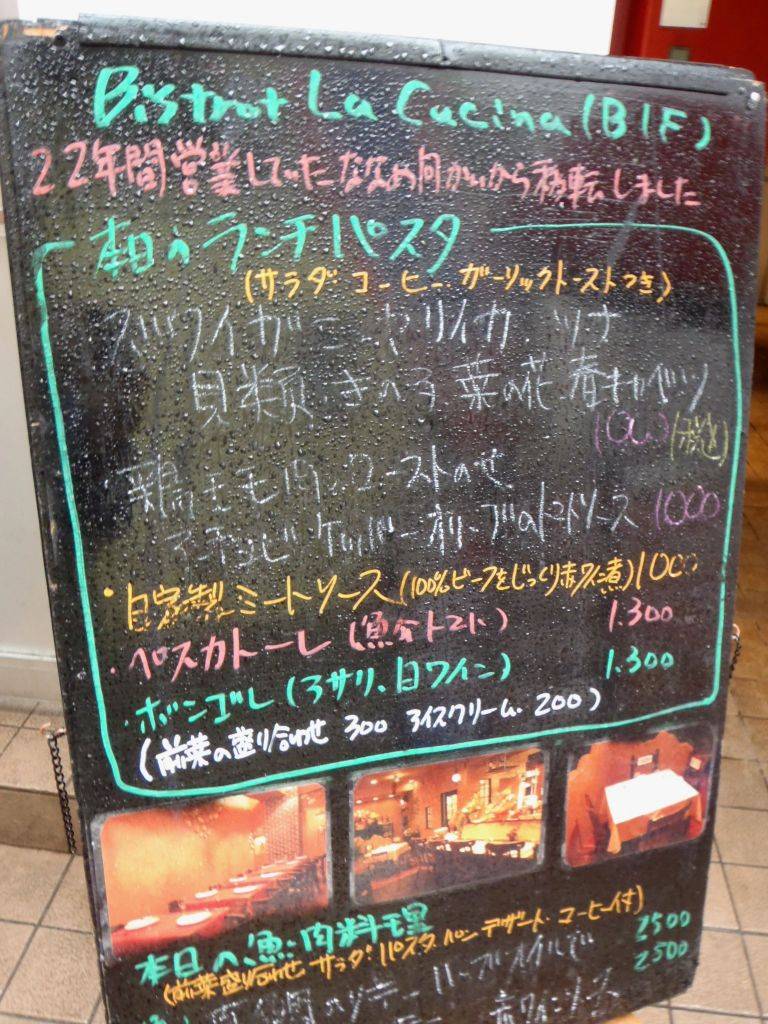 Bistrot La Cucina (B1F)
22年間営業していたななめ向かいから移転しました
本日のランチパスタ
(サラダ コーヒー ガーリックトーストつき)
ズワイガニ ヤリイカ ツナ
貝類 きの子 菜の花 春キャベツ
1000 (税込)
鶏モモ肉のローストのせ
アンチョビ ケッパー オリーブのトマトソース 1000
・自家製ミートソース (100%ビーフをじっくり赤ワイン煮) 1000
・ペスカトーレ (魚介トマト) 1.300
・ボンゴレ (アサリ、白ワイン) 1.300
(前菜の盛り合わせ 300 アイスクリーム 200)
本日の魚・肉料理 2500
(前菜盛り合わせ サラダ パスタ パン デザート コーヒー付) 2500
赤ワインソース